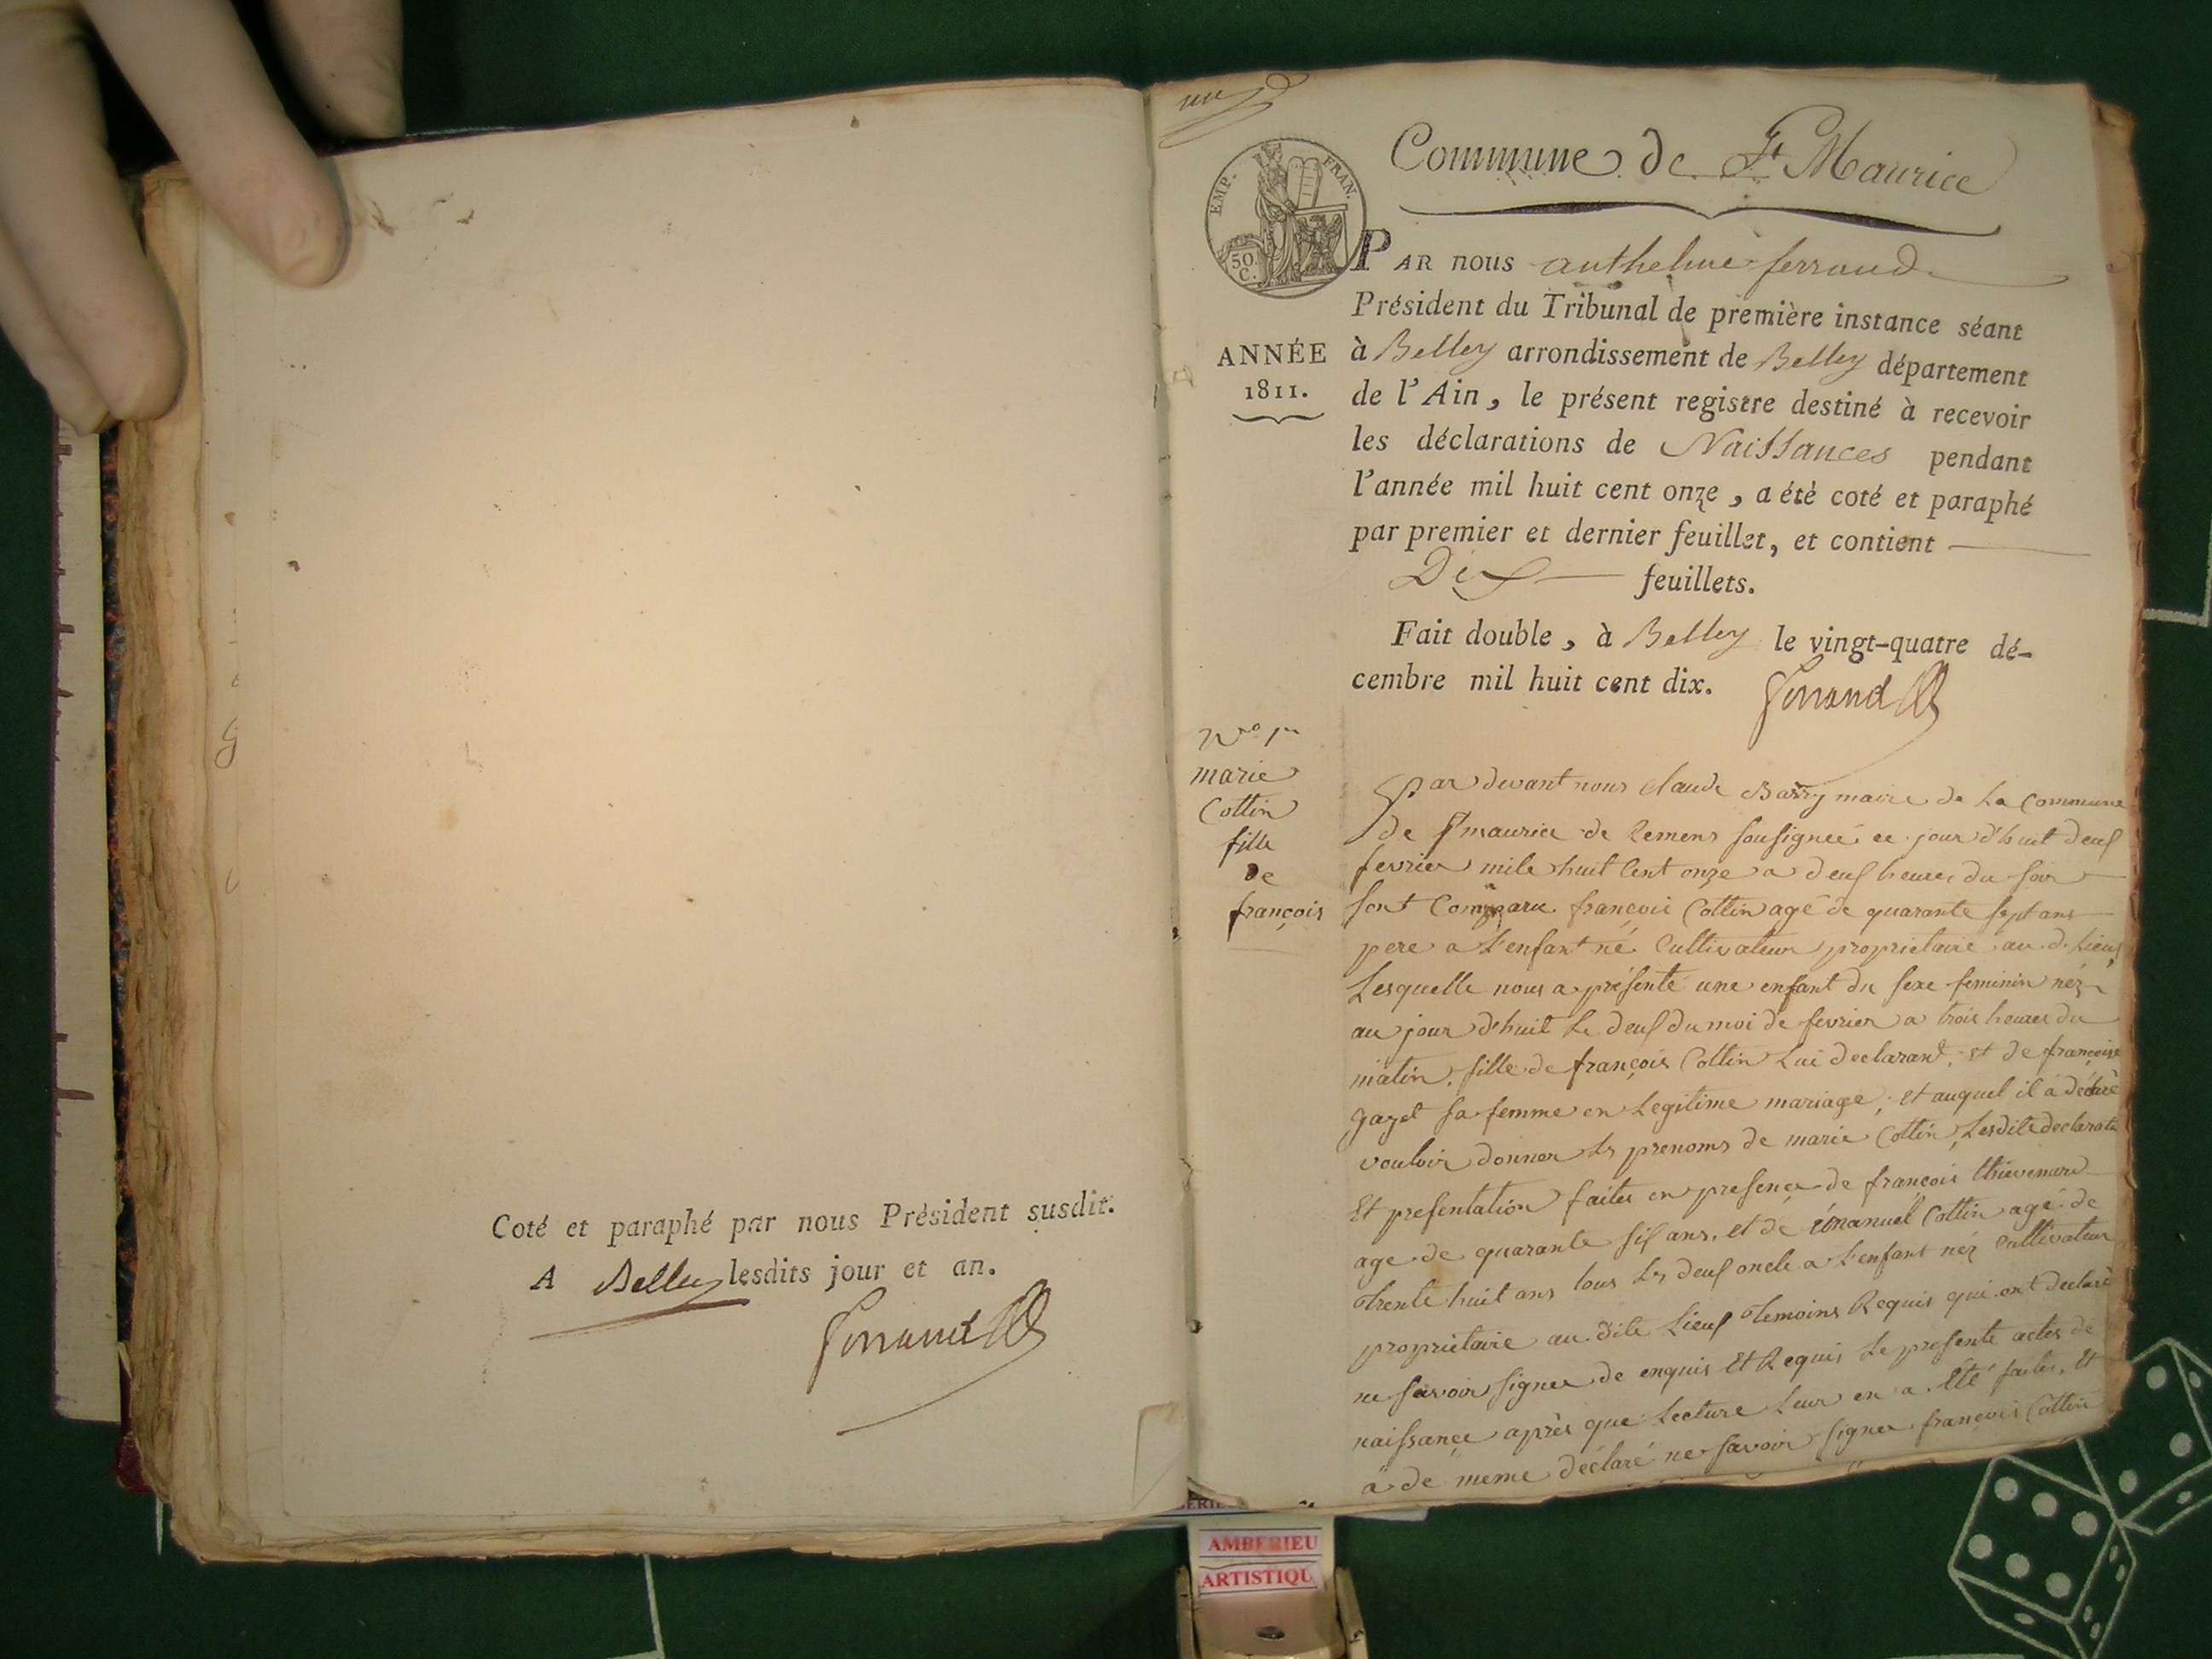 Coté et paraphé par nous Président susdit.
A Belley lesdits jour et an.
Ferrand
un
Commune de St Maurice
EMP. FRAN.
50 C.
PAR nous anthelme ferrand
Président du Tribunal de première instance séant
ANNÉE
1811.
à Belley arrondissement de Belley département
de l'Ain, le présent registre destiné à recevoir
les déclarations de Naissances pendant
l'année mil huit cent onze, a été coté et paraphé
par premier et dernier feuillet, et contient
Dix feuillets.
Fait double, à Belley le vingt-quatre dé-
cembre mil huit cent dix. Ferrand
No 1er
marie
Cottin
fille
de
françois
Par devant nous claude maire de La Commune
de St maurice de Remens sousigneé ce jour d'huit deux
fevrier mile huit Cent onze a deux heures du soir
sont Comparu françois Cottin agé de quarante sept ans
pere a L'enfant né Cultivateur proprietaire au d. Lieux
Lesquelle nous a présenté une enfant du sexe feminin néz
au jour d'huit Le deux du moi de fevrier a trois heures du
matin, fille de françois Cottin Lui declarant, et de françoise
gazel sa femme en Legitime mariage, et auquel il a déclaré
vouloir donner Les prenoms de marie Cottin, Lesdite declarati
Et presentation faites en presence de françois thievenard
age de quarante six ans, et de émanuel Cottin agé de
trente huit ans tous Les deux oncle a L'enfant néz Cultivateur
proprietaire au dite Lieux temoins Requis qui ont declaré
ne savoir signer de enquis Et Requis Le presente actes de
naissance après que Lecture Leur en a été faites, Et
a de meme déclaré ne savoir signer françois Cottin
AMBERIEU
ARTISTIQU